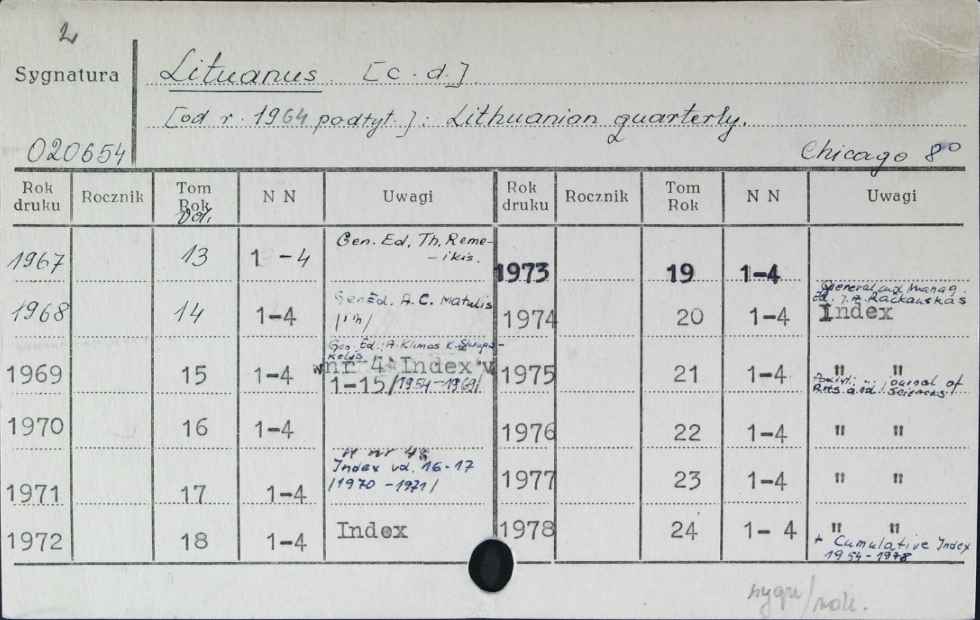 2
Sygnatura
Lituanus [c.d.]
[od r. 1964 podtyt.]: Lithuanian quarterly.
020654
Chicago 8°
Rok druku Rocznik Tom Rok Vol. N N Uwagi Rok druku Rocznik Tom Rok N N Uwagi
1967 13 1-4 Gen. Ed. Th. Reme-
-ikis.
1973 19 1-4
General and Manag.
Ed. J.A. Rackauskas
1968 14 1-4 Gen Ed. A.C. Matulis
1974 20 1-4 Index
Gen. Ed.: A. Klimas K.
1969 15 1-4 w nr 4 Index v
1-15/1954-1969/
1975 21 1-4 " "
Journal of
Arts and Sciences
1970 16 1-4
1976 22 1-4 " "
W nr 4
Index vol. 16-17
/1970-1971/
1971 17 1-4
1977 23 1-4 " "
1972 18 1-4 Index
1978 24 1-4 " "
+ Cumulative Index
1954-1978